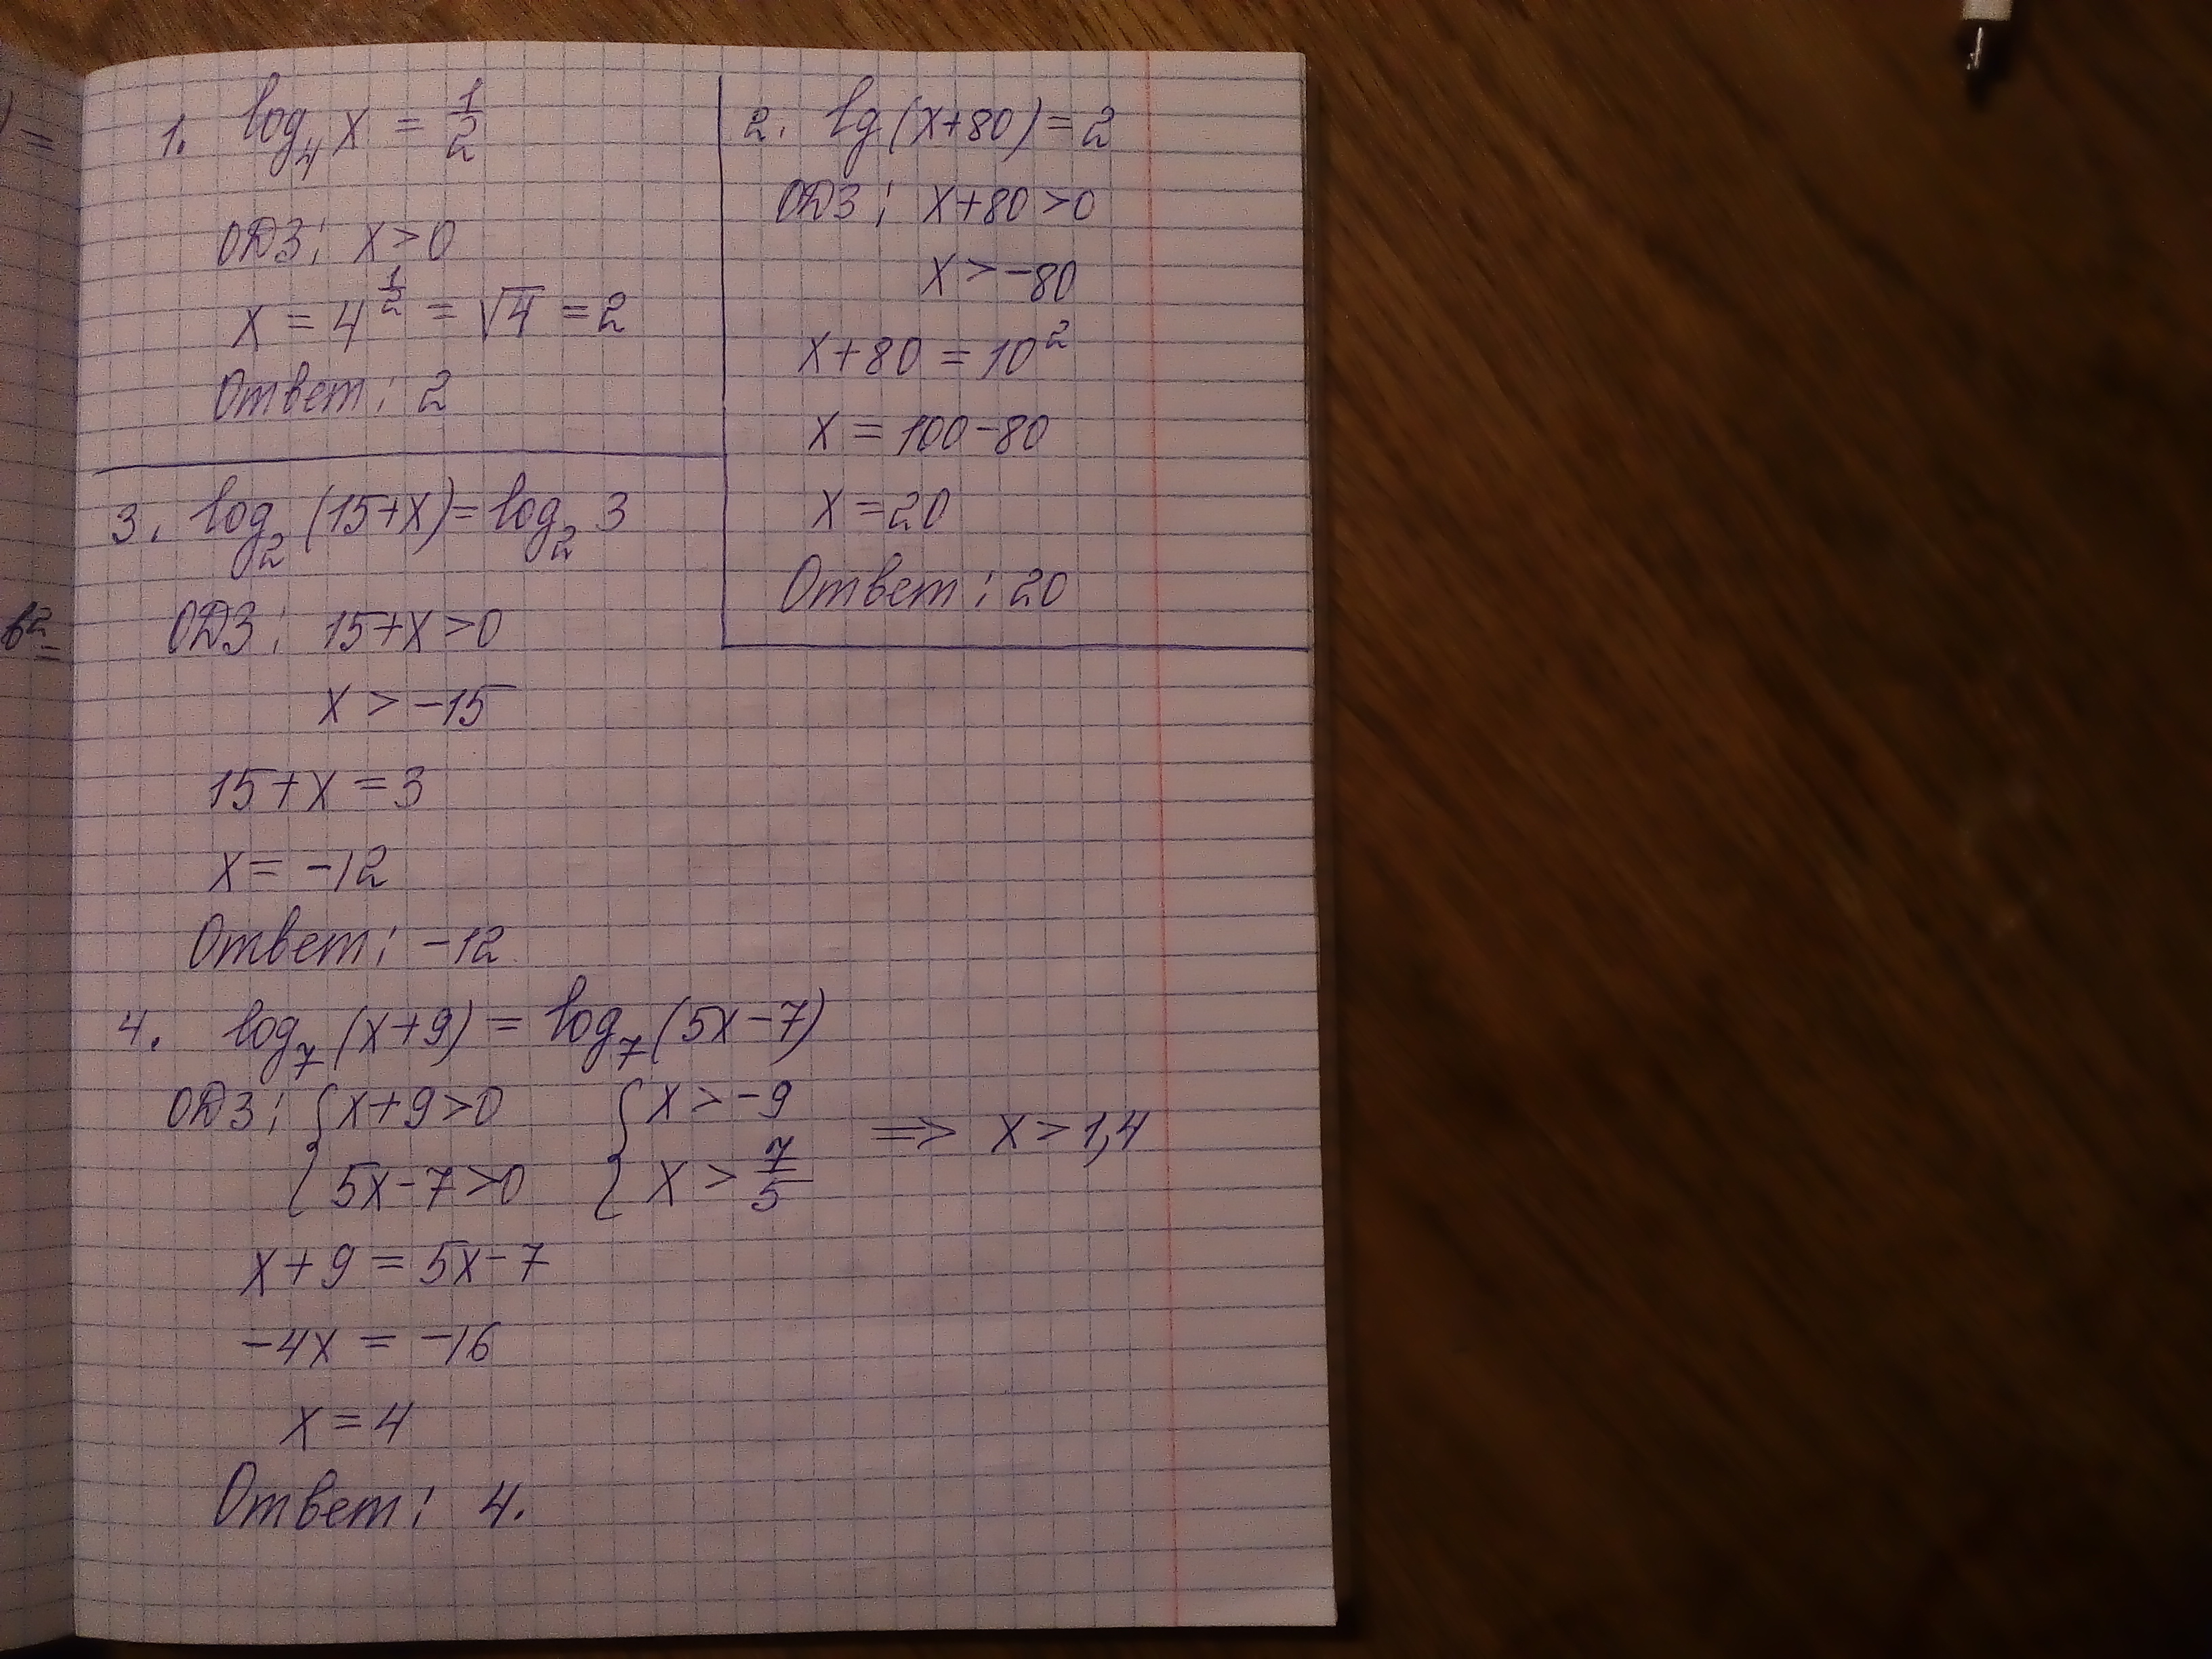 1. log₄ x = 1/2
ОДЗ: x > 0
x = 4^(1/2) = √4 = 2
Ответ: 2
2. lg(x+80) = 2
ОДЗ: x+80 > 0
x > -80
x+80 = 10²
x = 100-80
x = 20
Ответ: 20
3. log₂(15+x) = log₂ 3
ОДЗ: 15+x > 0
x > -15
15+x = 3
x = -12
Ответ: -12
4. log₇(x+9) = log₇(5x-7)
ОДЗ: { x+9 > 0 { x > -9
5x-7 > 0 x > 7/5 => x > 1,4
x+9 = 5x-7
-4x = -16
x = 4
Ответ: 4.